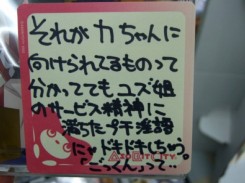 それがカちゃんに
向けられてるものって
分かっててもユズ姐
のサービス精神に
満ちた淫語
にゃドキドキしちゃう。
「ごっくん」って‥